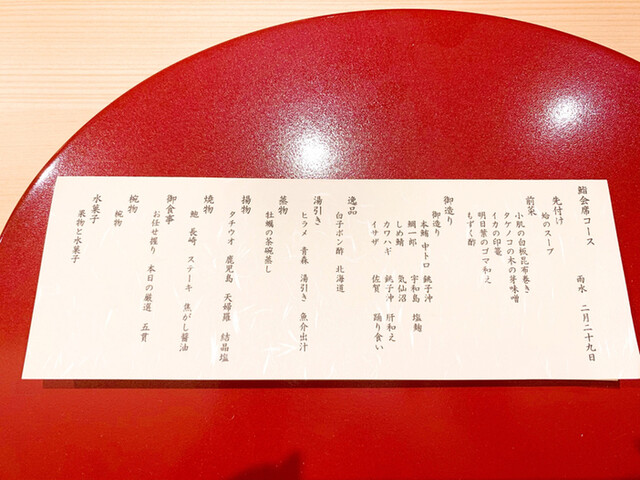 鮨会席コース　雨水　二月二十九日
先付け
蛤のスープ
前菜
小肌の白板昆布巻き
タケノコの木の芽味噌
イカの印篭
明日葉のゴマ和え
もずく酢
御造り
御造り
本鮪　中トロ　銚子沖
鯛一郎　宇和島　塩麹
しめ鯖　気仙沼
カワハギ　銚子沖　肝和え
イサザ　佐賀　踊り食い
逸品
白子ポン酢　北海道
湯引き
ヒラメ　青森　湯引き　魚介出汁
蒸物
牡蠣の茶碗蒸し
揚物
タチウオ　鹿児島　天婦羅　結晶塩
焼物
鮑　長崎　ステーキ　焦がし醤油
御食事
お任せ握り　本日の厳選　五貫
椀物
椀物
水菓子
果物と水菓子